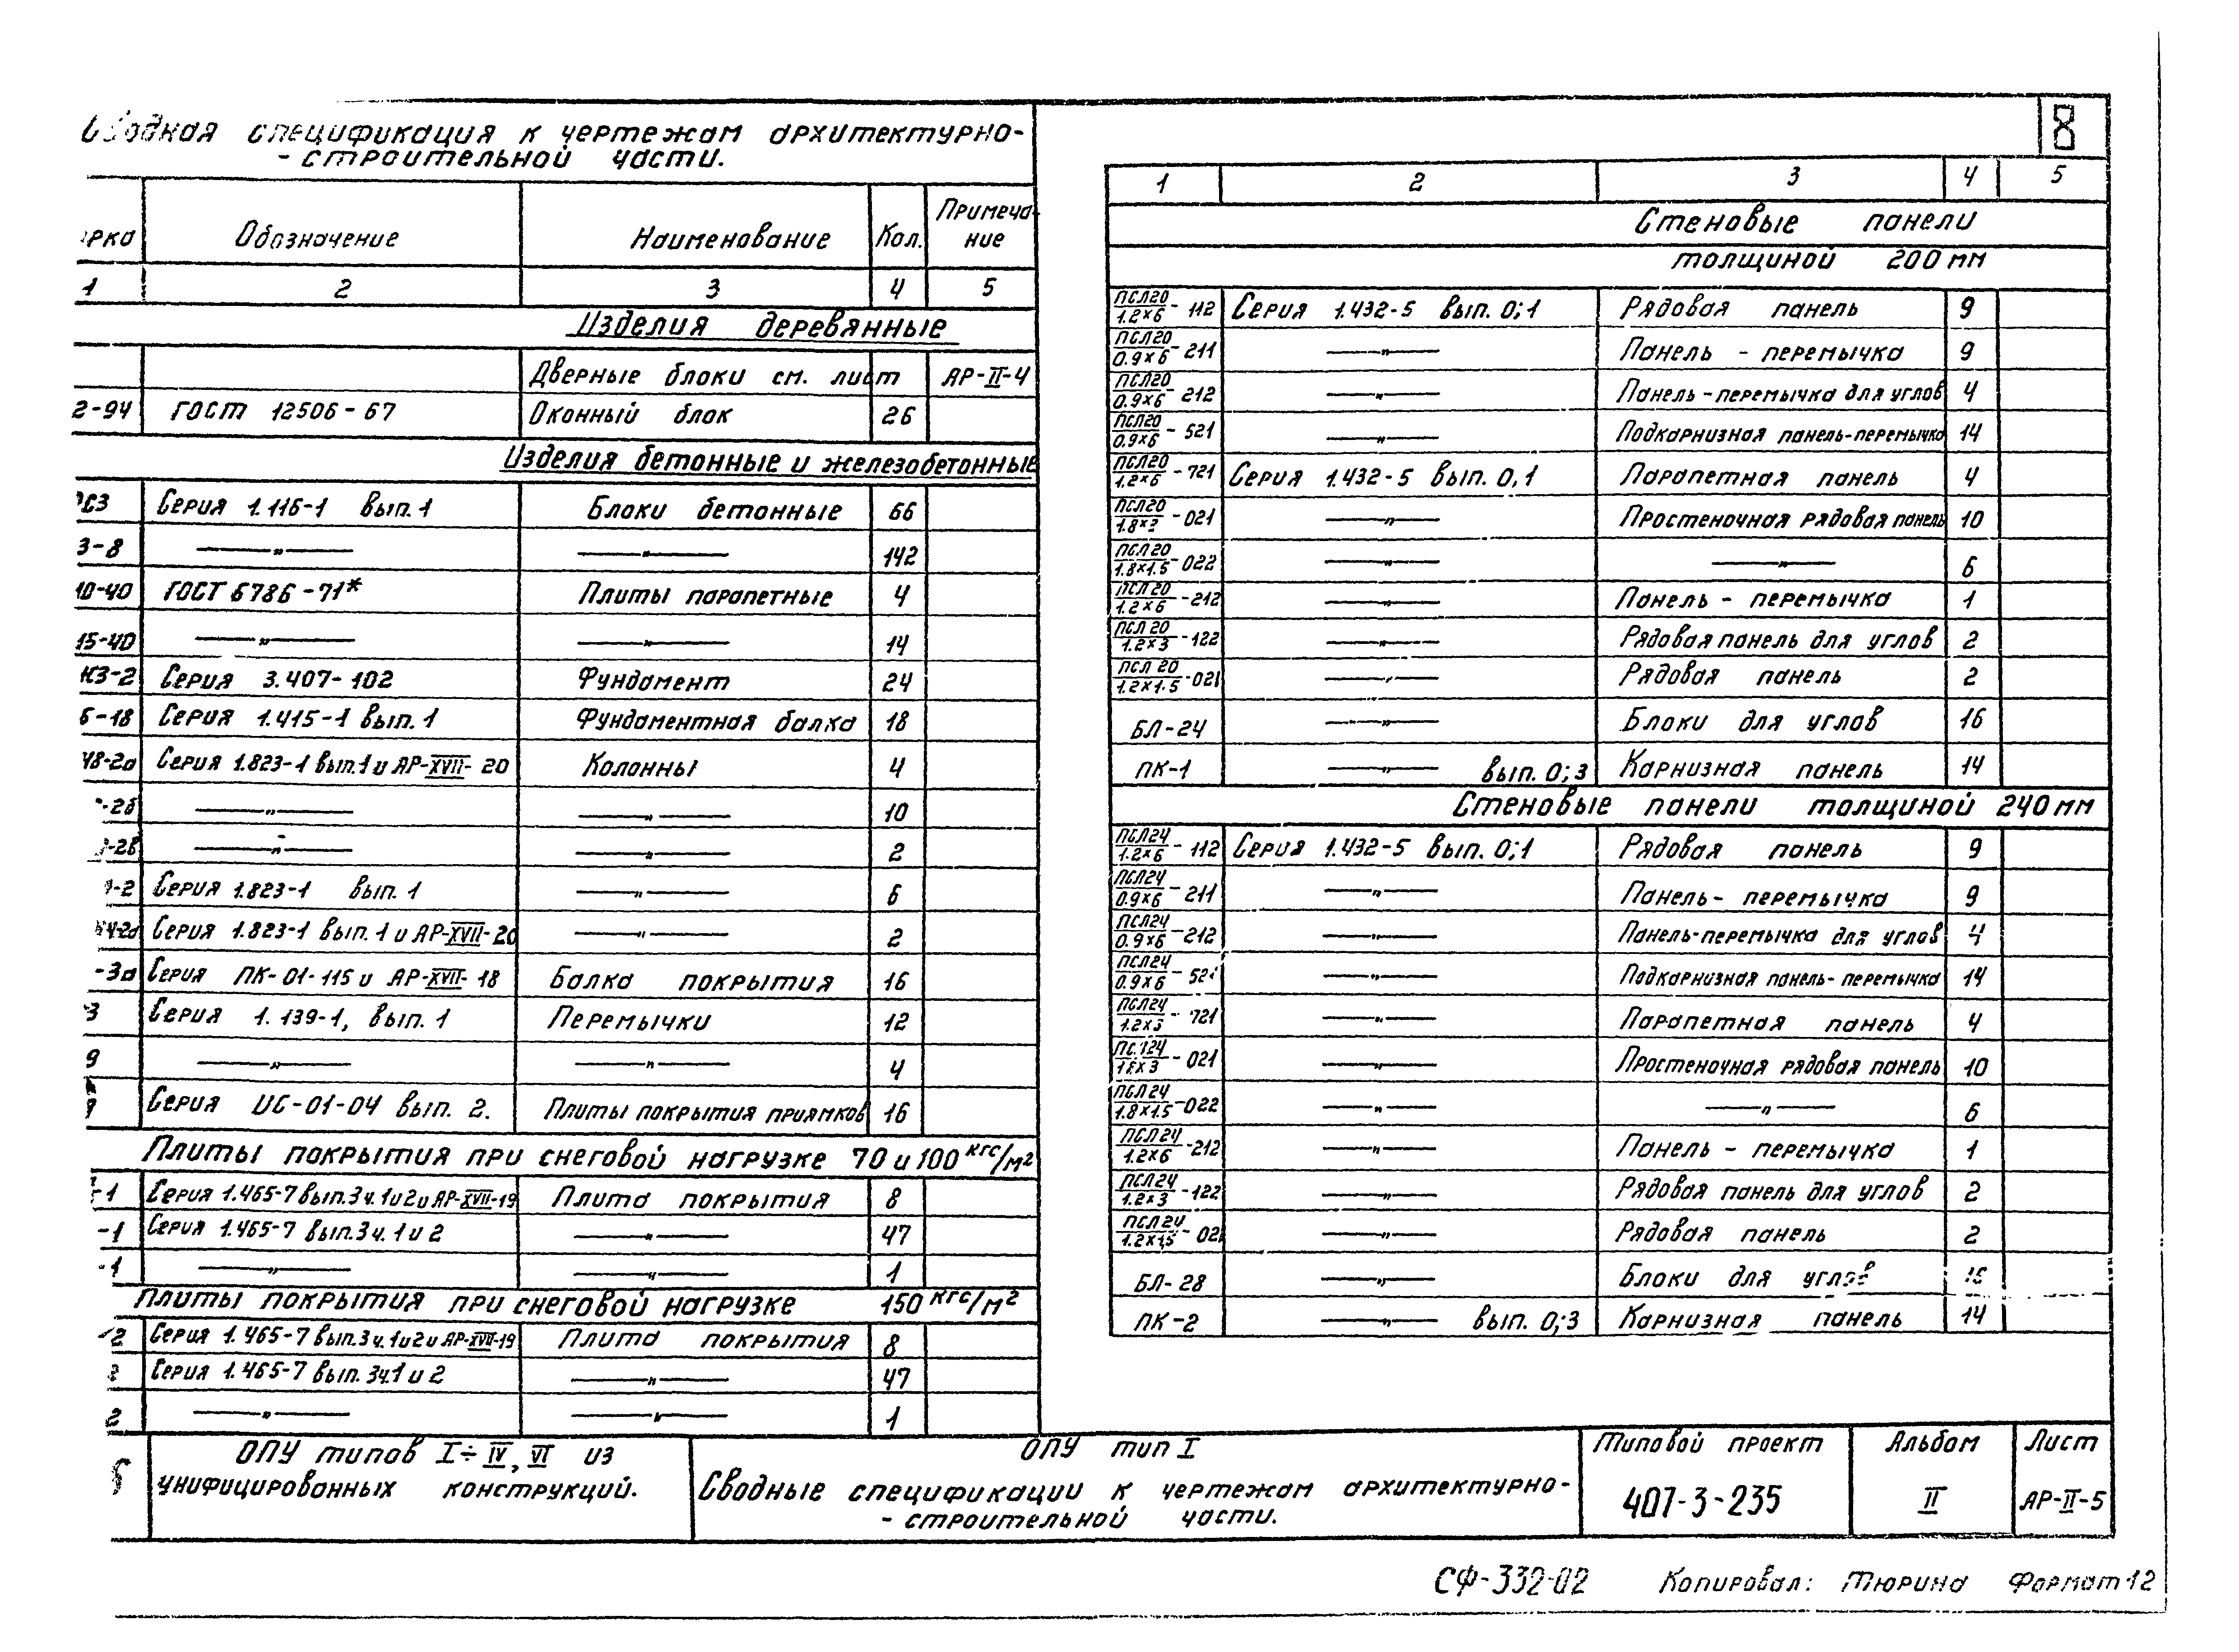 Сводная спецификация к чертежам архитектурно-
- строительной части.
арка Обозначение Наименование Кол. Примеча-
ние
1 2 3 4 5
Изделия деревянные
Дверные блоки см. лист АР-II-4
2-94 ГОСТ 12506-67 Оконный блок 26
Изделия бетонные и железобетонные
Серия 1.116-1 вып. 1 Блоки бетонные 66
3-8 —"— —"— 142
10-40 ГОСТ 6786-71* Плиты парапетные 4
15-40 —"— —"— 14
К3-2 Серия 3.407-102 Фундамент 24
6-18 Серия 1.415-1 вып. 1 Фундаментная балка 18
48-2а Серия 1.823-1 вып.1 и АР-XVII-20 Колонны 4
-2б —"— —"— 10
-2в —"— —"— 2
-2 Серия 1.823-1 вып. 1 —"— 6
44-2д Серия 1.823-1 вып. 1 и АР-XVII-20 —"— 2
-3а Серия ПК-01-115 и АР-XVII-18 Балка покрытия 16
3 Серия 1.139-1, вып. 1 Перемычки 12
9 —"— —"— 4
Серия ИС-01-04 вып. 2. Плиты покрытия приямков 16
Плиты покрытия при снеговой нагрузке 70 и 100 кгс/м²
-1 Серия 1.465-7 вып.3 ч.1 и 2 и АР-XVII-19 Плита покрытия 8
-1 Серия 1.465-7 вып.3 ч.1 и 2 —"— 47
-1 —"— —"— 1
Плиты покрытия при снеговой нагрузке 150 кгс/м²
-2 Серия 1.465-7 вып.3 ч.1 и 2 и АР-XVII-19 Плита покрытия 8
2 Серия 1.465-7 вып. 3 ч.1 и 2 —"— 47
2 —"— —"— 1
8
1 2 3 4 5
Стеновые панели
толщиной 200 мм
ПСЛ20/1.2×6-112 Серия 1.432-5 вып. 0;1 Рядовая панель 9
ПСЛ20/0.9×6-211 —"— Панель - перемычка 9
ПСЛ20/0.9×6-212 —"— Панель-перемычка для углов 4
ПСЛ20/0.9×6-521 —"— Подкарнизная панель-перемычка 14
ПСЛ20/1.2×6-721 Серия 1.432-5 вып. 0,1 Парапетная панель 4
ПСЛ20/1.8×3-021 —"— Простеночная рядовая панель 10
ПСЛ20/1.8×1.5-022 —"— —"— 6
ПСЛ20/1.2×6-212 —"— Панель - перемычка 1
ПСЛ20/1.2×3-122 —"— Рядовая панель для углов 2
ПСЛ20/1.2×1.5-021 —"— Рядовая панель 2
БЛ-24 —"— Блоки для углов 16
ПК-1 —"— вып. 0;3 Карнизная панель 14
Стеновые панели толщиной 240 мм
ПСЛ24/1.2×6-112 Серия 1.432-5 вып. 0;1 Рядовая панель 9
ПСЛ24/0.9×6-211 —"— Панель - перемычка 9
ПСЛ24/0.9×6-212 —"— Панель-перемычка для углов 4
ПСЛ24/0.9×6-521 —"— Подкарнизная панель-перемычка 14
ПСЛ24/1.2×3-721 —"— Парапетная панель 4
ПСЛ24/1.8×3-021 —"— Простеночная рядовая панель 10
ПСЛ24/1.8×1.5-022 —"— —"— 6
ПСЛ24/1.2×6-212 —"— Панель - перемычка 1
ПСЛ24/1.2×3-122 —"— Рядовая панель для углов 2
ПСЛ24/1.2×1,5-021 —"— Рядовая панель 2
БЛ-28 —"— Блоки для углов 16
ПК-2 —"— вып. 0;3 Карнизная панель 14
ОПУ типов I÷IV, VI из
унифицированных конструкций.
ОПУ тип I
Сводные спецификации к чертежам архитектурно-
- строительной части.
Типовой проект
407-3-235
Альбом
II
Лист
АР-II-5
СФ-332-02 Копировал: Тюрина Формат 12